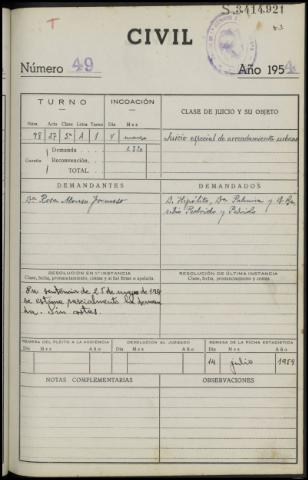 S.3.414.921
T
CIVIL
Número 49
Año 1954
TURNO
INCOACIÓN
CLASE DE JUICIO Y SU OBJETO
Núm. Acta Clase Letra Turno Día Mes
98 27 5ª A 1
Juicio especial de arrendamiento urbano
Cuantía
Demanda
Reconvención
TOTAL
DEMANDANTES
DEMANDADOS
Dª Rosa Alonso
D. Hipólito, Dª Palmira y D.
RESOLUCIÓN EN 1ª INSTANCIA
Clase, fecha, pronunciamiento, costas y si fué firme o apelada
RESOLUCIÓN DE ÚLTIMA INSTANCIA
Clase, fecha, pronunciamiento y costas
En sentencia de 25 de mayo de 1954
se estima parcialmente la deman-
da. Sin costas.
REMESA DEL PLEITO A LA AUDIENCIA
DEVOLUCIÓN AL JUZGADO
REMESA DE LA FICHA ESTADÍSTICA
Día Mes Año Día Mes Año Día Mes Año
14 julio 1954
NOTAS COMPLEMENTARIAS
OBSERVACIONES